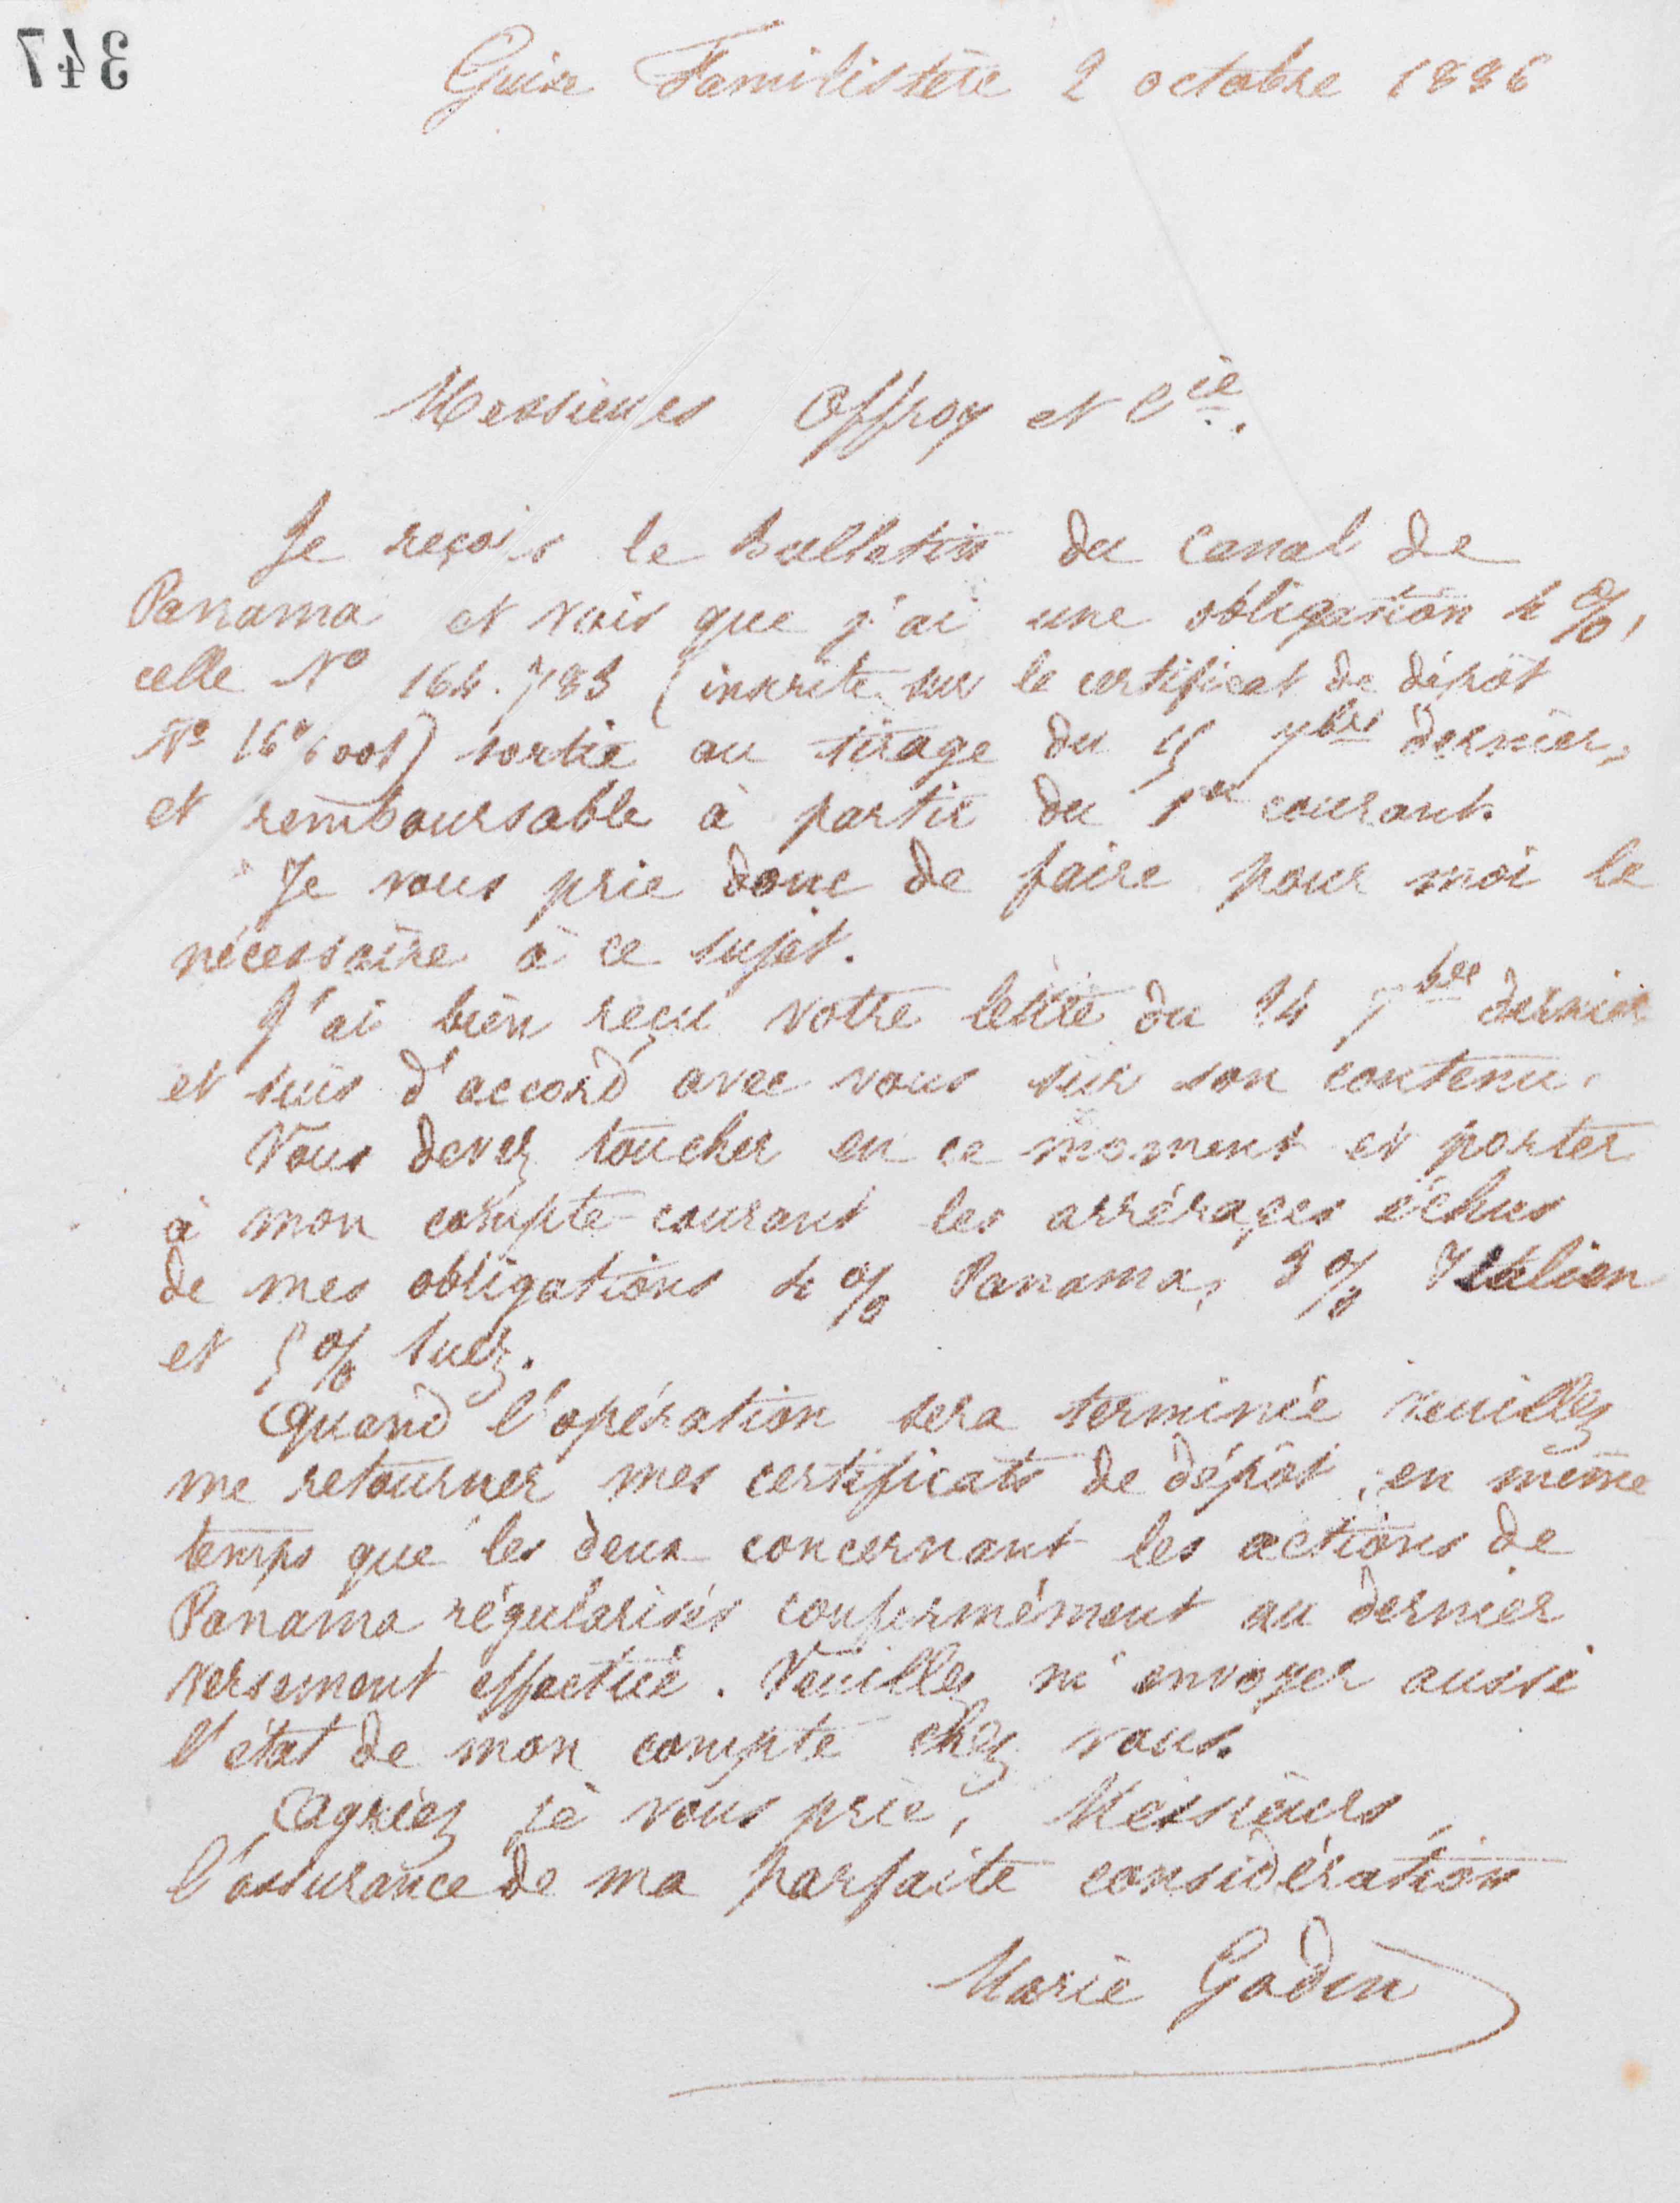 347
Guise Familistère 2 octobre 1886
Messieurs Offroy et Cie.
Je reçois le bulletin du canal de
Panama et vois que j'ai une obligation 4 %,
celle No 164.783 (inscrite sur le certificat de dépôt
No sortie au tirage du 15 7bre dernier,
et remboursable à partir du 1er courant.
Je vous prie donc de faire pour moi le
nécessaire à ce sujet.
J'ai bien reçu votre lettre du 24 7bre dernier
et suis d'accord avec vous sur son contenu.
Vous devez toucher en ce moment et porter
à mon compte-courant les arrérages échus
de mes obligations 4 % Panama, 3 % Italien
et 5 % Suez.
Quand l'opération sera terminée veuillez
me retourner mes certificats de dépôt, en même
temps que les deux concernant les actions de
Panama régularisés conformément au dernier
versement effectué. Veuillez m'envoyer aussi
l'état de mon compte chez vous.
Agréez je vous prie, Messieurs,
l'assurance de ma parfaite considération
Marie Godin